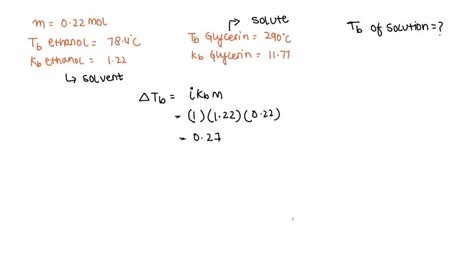 m = 0.22 mol
Tb ethanol = 78.4°C
Kb ethanol = 1.22
↳ solvent
→ solute
Tb Glycerin = 290°C
Kb Glycerin = 11.77
Tb of solution = ?
ΔTb = i Kb m
= (1) (1.22) (0.22)
= 0.27